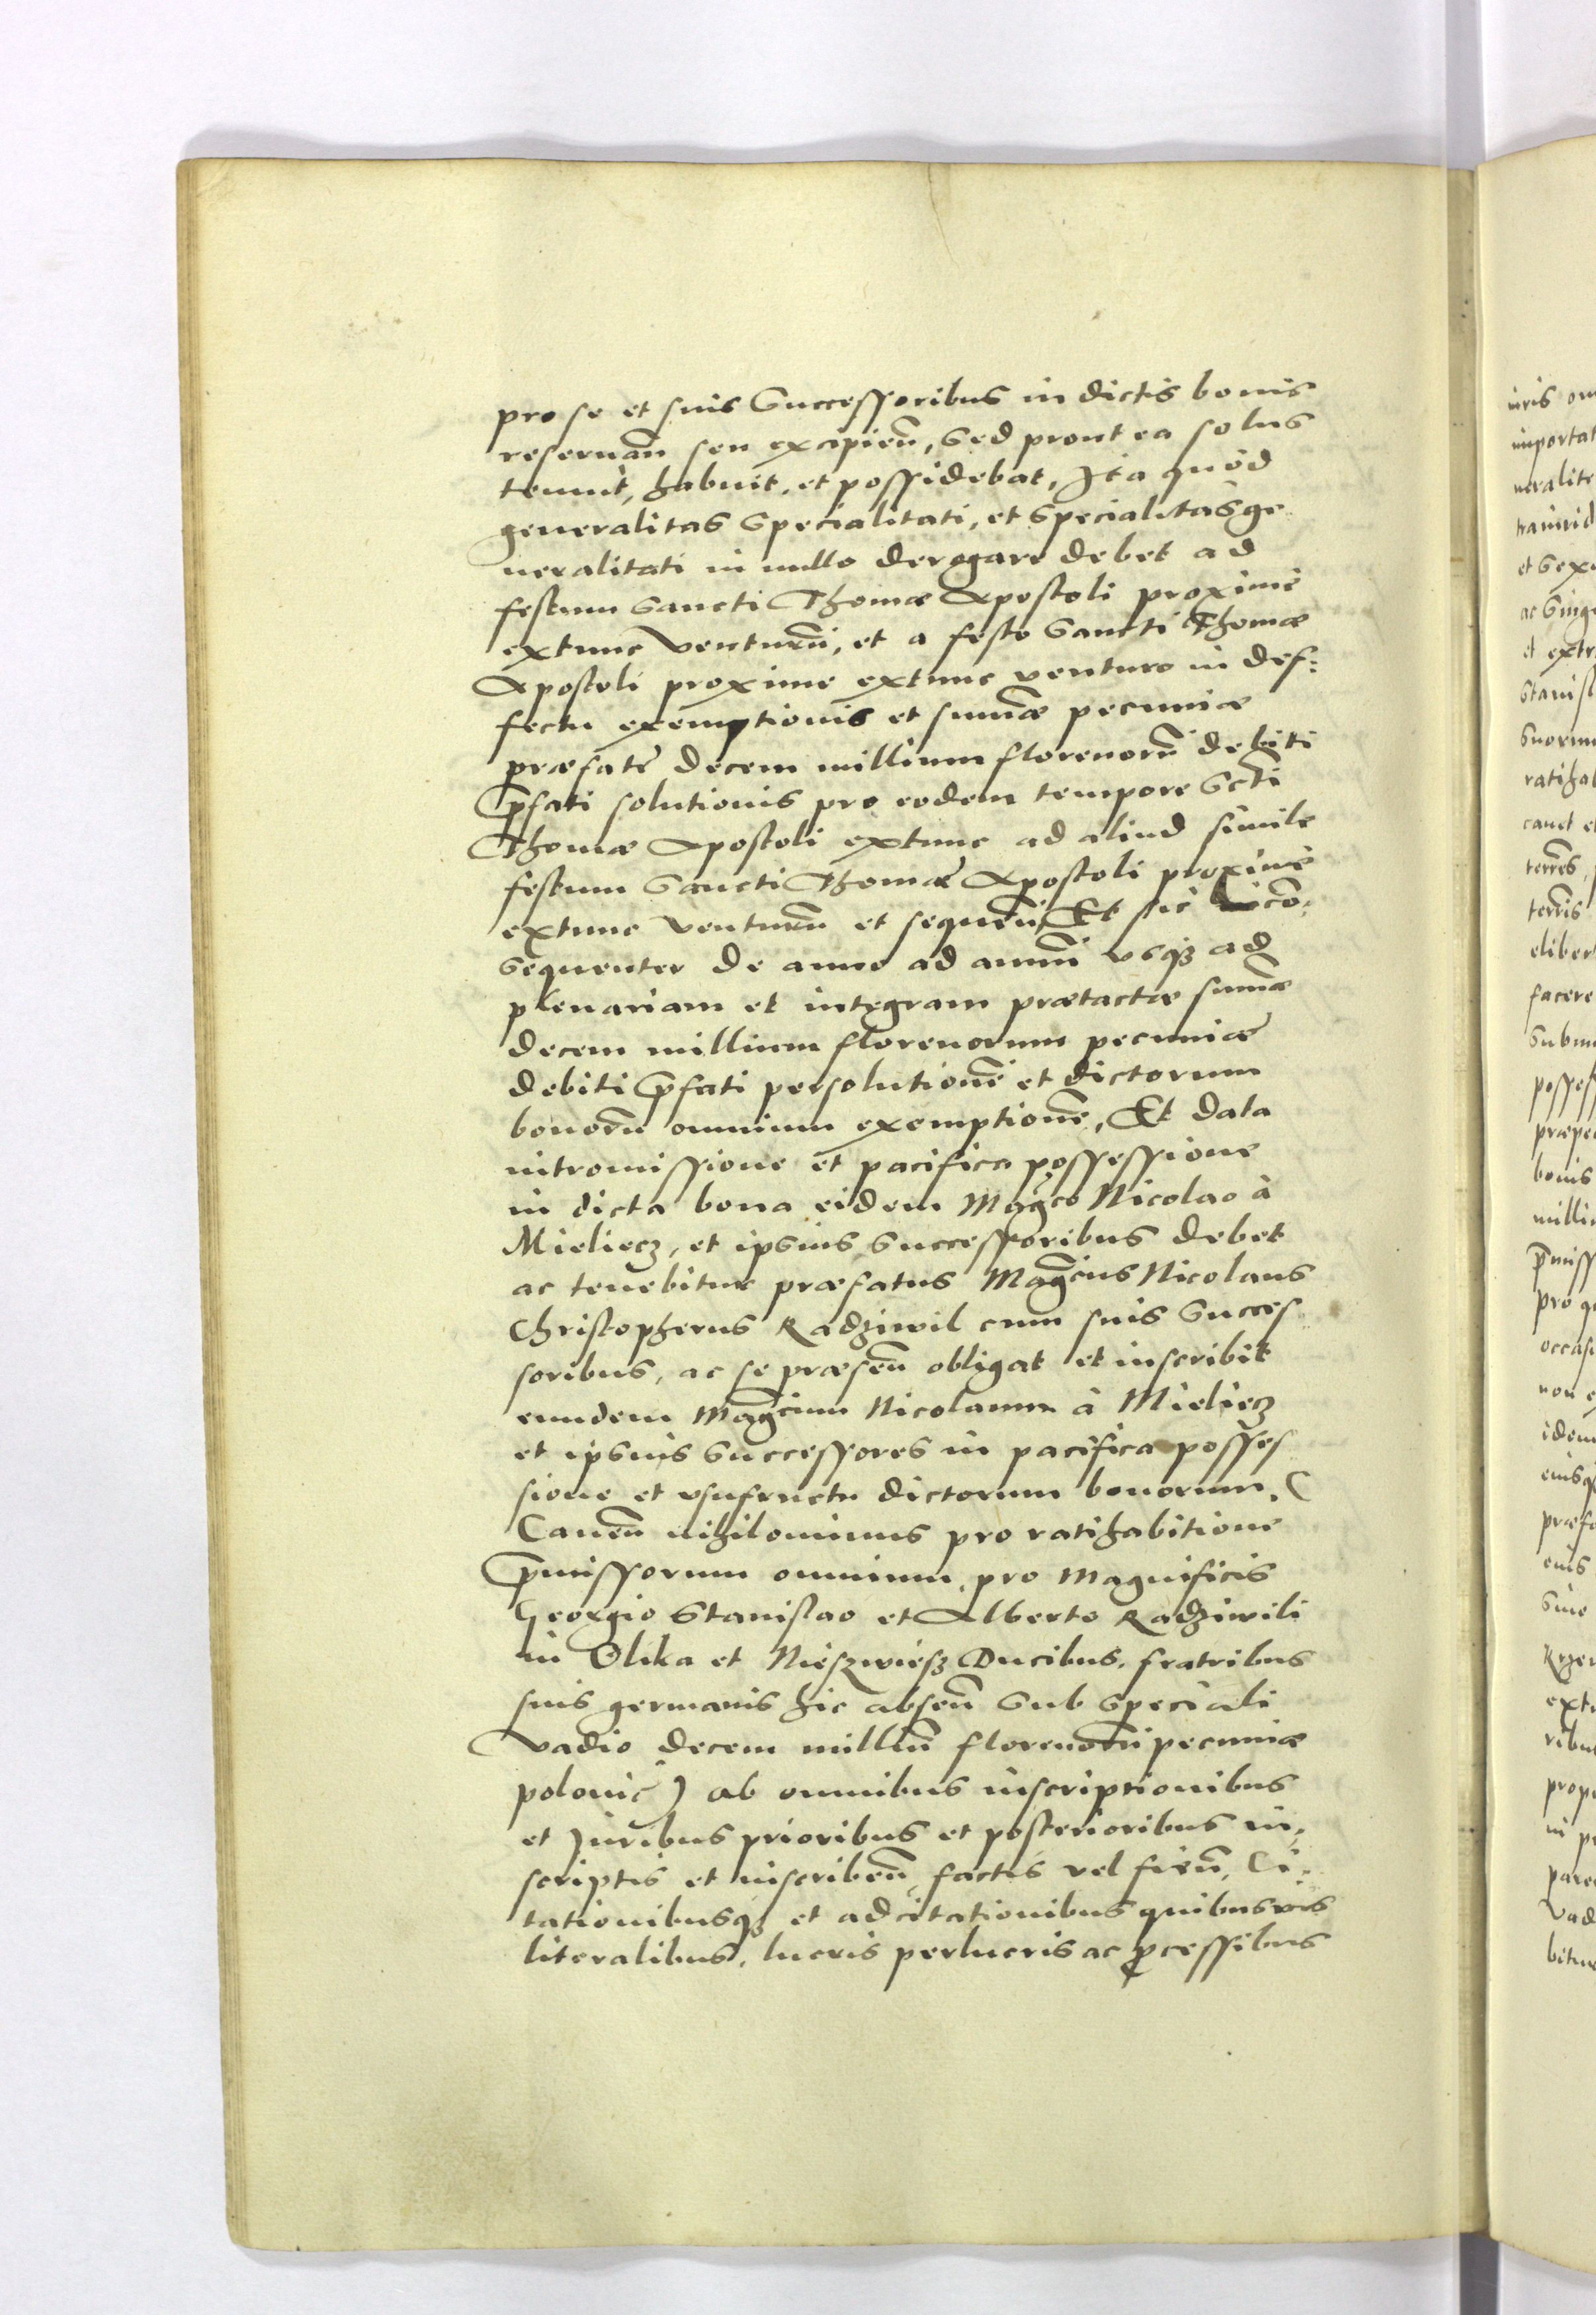 pro se et suis Successoribus in dictis bonis
reseruan̄ seu excipien̄, Sed prout ea solus
tenuit, habuit, et possidebat, Ita quod
generalitas Specialitati, et Specialitas ge
neralitati in nullo derogare debet ad
festum Sancti Thomæ Apostoli proxime
extunc venturū, et a festo Sancti Thomæ
Apostoli proxime extunc venturo in def:
fectu exemptionis et sum̄æ pecuniæ
præfatę decem millium florenorū debiti
p̄fati solutionis pro eodem tempore Scti
Thomæ Apostoli extunc ad aliud simile
festum Sancti Thomæ Apostoli proxime
extunc venturū et sequen̄, Et sic con̄:
sequenter de anno ad annū vsq3 ad
plenariam et integram prætactæ sum̄æ
decem millium florenorum pecuniæ
debiti p̄fati persolutionē et dictorum
bonorū omnium exemptionē, Et data
intromissione et pacifica possessione
in dicta bona eidem Mag̃co Nicolao à
Mieliecz, et ipsius Successoribus debet
ac tenebitur præfatus Mag̃cus Nicolaus
Christopherus Radziwil cum suis Succes
soribus, ac se præsen̄ obligat et inscribit
eundem Mag̃cum Nicolaum à Mieliecz
et ipsius Successores in pacifica posses
sione et vsufructu dictorum bonorum, (
Cauen̄ nihilominus pro ratihabitione
p̄missorum omnium, pro Magnificis
Georgio Stanislao et Alberto Radziwili
in Olika et Nieszwiesz Ducibus, fratribus
suis germanis hic absen̄ Sub speciali
vadio decem milliū florenorū pecuniæ
polonic̄) ab omnibus inscriptionibus
et Iuribus prioribus et posterioribus in:
scriptis et inscriben̄, factis vel fien̄, Ci:
tationibusq3 et adcitationibus quibusvis
literalibus, lucris perlucris ac ꝓcessibus